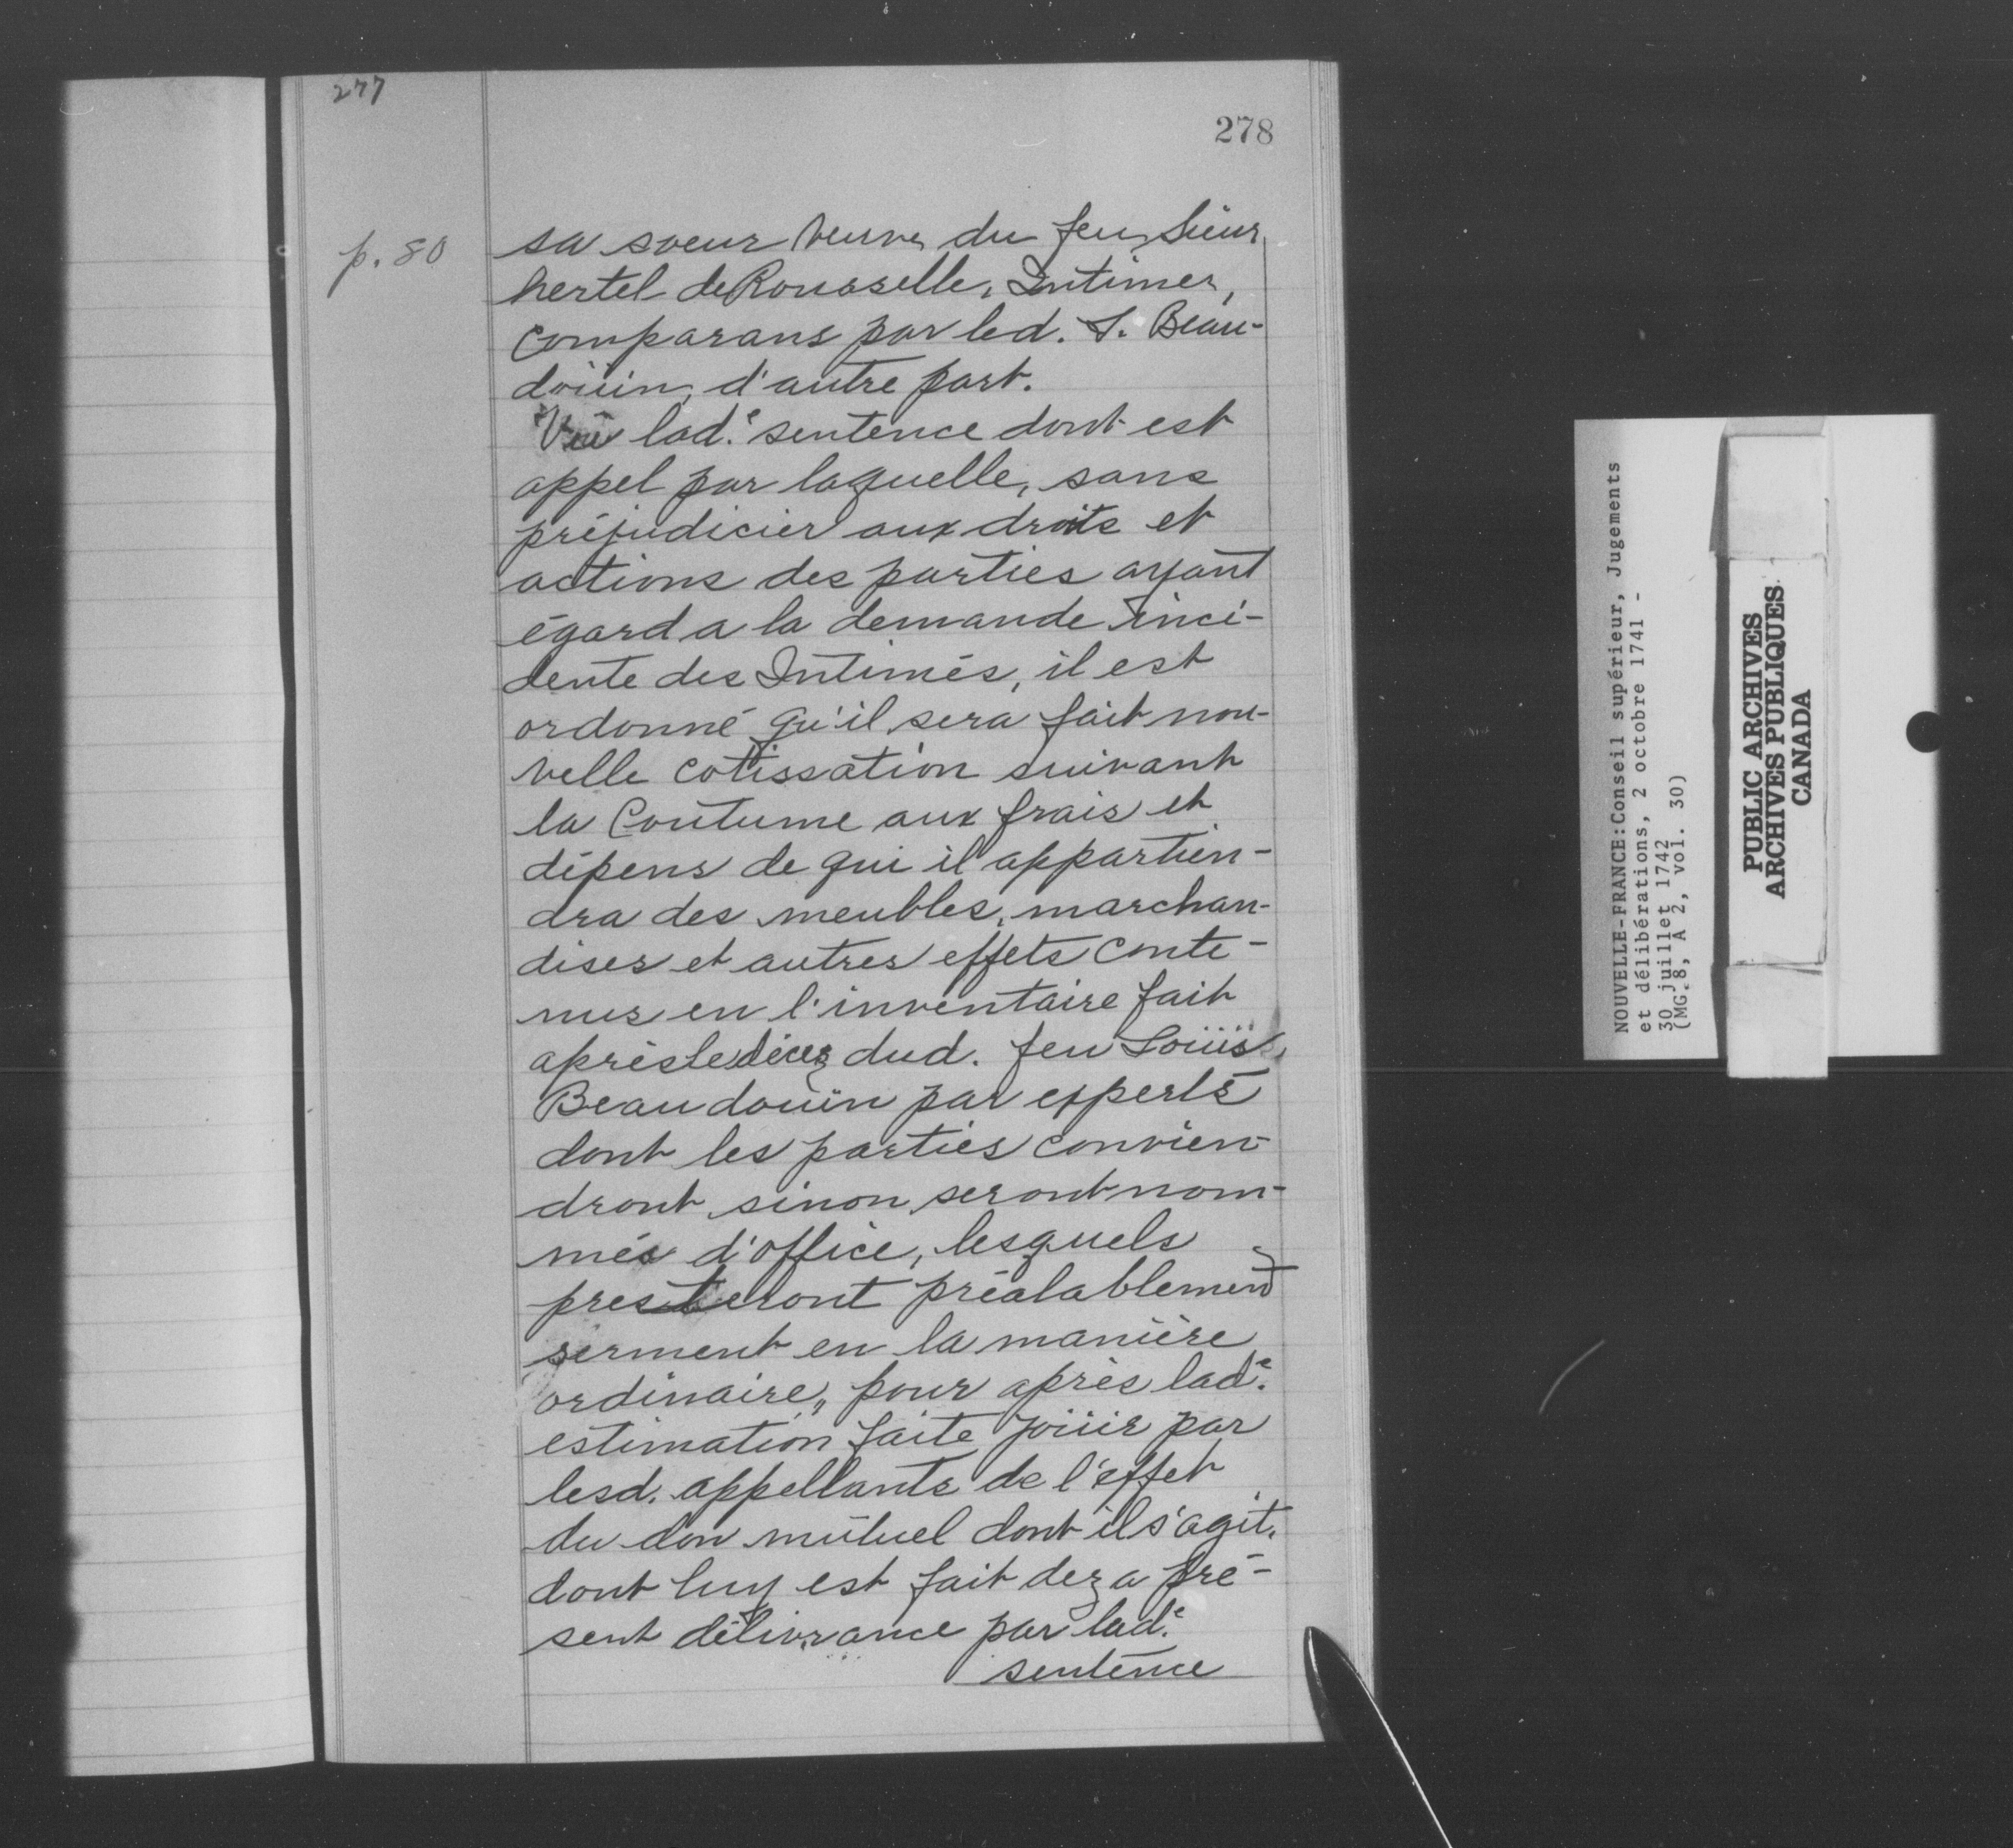 277
278
p. 80
sa soeur veuve du feu Sieur
hertel de Rouaselle, Intimer,
comparans par led. S. Beau-
doüin, d'autre part.
Vû lad.e sentence dont est
appel par laquelle, sans
préjudicier aux droits et
actions des parties ayant
égard a la demande inci-
dente des Intimés, il est
ordonné qu'il sera fait nou-
velle cotissation suivant
la Coutume aux frais et
dépens de qui il appartien-
dra des meubles, marchan-
dises et autres effets conte-
nus en l'inventaire fait
après le décez dud. feu Loüis
Beaudoüin par experts
dont les parties convien-
dront sinon seront nom-
més d'office, lesquels
presteront préalablement
serment en la manière
ordinaire,, pour après lad.e
estimation faite joüir par
lesd. appellants de l'effet
du don mutuel dont il s'agit,
dont luy est fait deza pré-
sent délivrance par lad.e
sentence
NOUVELLE-FRANCE:Conseil supérieur, Jugements
et délibérations, 2 octobre 1741 -
30 juillet 1742
(MG.8, A 2, vol. 30)
PUBLIC ARCHIVES
ARCHIVES PUBLIQUES
CANADA